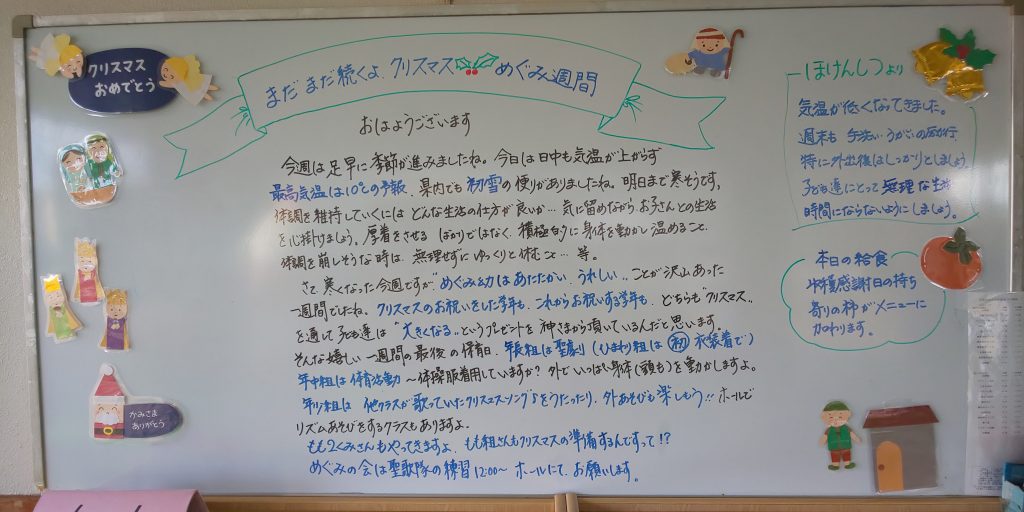 クリスマス
おめでとう
まだまだ続くよ クリスマス めぐみ週間
おはようございます
今週は足早に季節が進みましたね。今日は日中も気温が上がらず
最高気温は10℃の予報、県内でも初雪の便りがありましたね。明日まで寒そうです。
体調を維持していくには どんな生活の仕方が良いか… 気に留めながら、お子さんとの生活
を心掛けましょう。厚着をさせる ばかりではなく、積極的に身体を動かし 温めること、
体調を崩しそうな時は、無理せずに ゆっくりと休むこと… 等。
さて 寒くなった今週ですが"めぐみ幼はあたたかい、うれしい" ことが沢山あった
一週間でしたね。クリスマスのお祝いをした学年も、これからお祝いする学年も、どちらも"クリスマス"
を通して子ども達は "大きくなる" というプレゼントを 神さまから頂いているんだと思います。
そんな嬉しい 一週間の最後 の保育日、年長組は聖劇 (ひまわり組は 初 衣装着で)
年中組は体育活動 〜体操服着用していますか? 外でいっぱい身体(頭も)を動かしますよ。
年少組は 他クラスが歌っていたクリスマスソング♪をうたったり、外あそびも楽しもう!! ホールで
リズムあそびをするクラスもありますよ。
もも2くみさんもやってきますよ、もも組さんもクリスマスの準備するんですって!?
めぐみの会は聖歌隊の練習 12:00〜 ホールにて、お願いします。
かみさま
ありがとう
ほけんしつより
気温が低くなってきました。
週末も 手洗い うがいの励行
特に外出後はしっかりとしましょう。
子ども達にとって 無理な生活
時間にならないようにしましょう。
本日の給食
収穫感謝日の持ち
寄りの柿がメニューに
加わります。